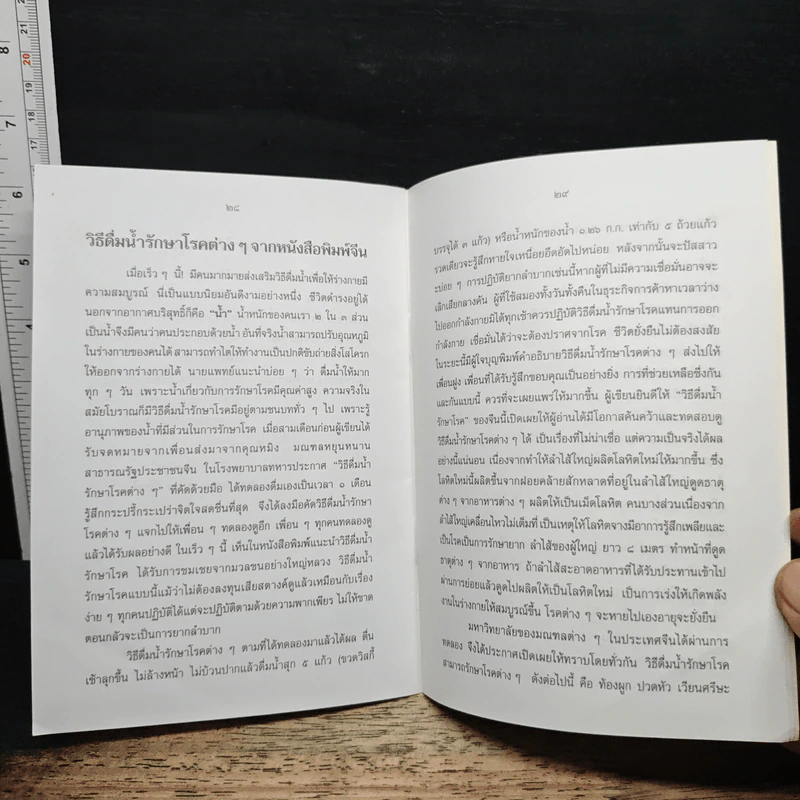 ๒๘
วิธีดื่มน้ำรักษาโรคต่าง ๆ จากหนังสือพิมพ์จีน
เมื่อเร็ว ๆ นี้! มีคนมากมายส่งเสริมวิธีดื่มน้ำเพื่อให้ร่างกายมี
ความสมบูรณ์ นี่เป็นแบบนิยมอันดีงามอย่างหนึ่ง ชีวิตดำรงอยู่ได้
นอกจากอากาศบริสุทธิ์ก็คือ “น้ำ” น้ำหนักของคนเรา ๒ ใน ๓ ส่วน
เป็นน้ำจึงมีคนว่าคนประกอบด้วยน้ำ อันที่จริงน้ำสามารถปรับอุณหภูมิ
ในร่างกายของคนได้ สามารถทำไตให้ทำงานเป็นปกติขับถ่ายสิ่งโสโครก
ให้ออกจากร่างกายได้ นายแพทย์แนะนำบ่อย ๆ ว่า ดื่มน้ำให้มาก
ทุก ๆ วัน เพราะน้ำเกี่ยวกับการรักษาโรคมีคุณค่าสูง ความจริงใน
สมัยโบราณก็มีวิธีดื่มน้ำรักษาโรคมีอยู่ตามชนบททั่ว ๆ ไป เพราะรู้
อานุภาพของน้ำที่มีส่วนในการรักษา เมื่อสามเดือนก่อนผู้เขียนได้
รับจดหมายจากเพื่อนส่งมาจากคุนหมิง มณฑลหยุนหนาน
สาธารณรัฐประชาชนจีน ในโรงพยาบาลทหารประกาศ “วิธีดื่มน้ำ
รักษาโรคต่าง ๆ” ที่คัดด้วยมือ ได้ทดลองดื่มเองเป็นเวลา ๑ เดือน
รู้สึกกระปรี้กระเปร่าจิตใจสดชื่นที่สุด จึงได้ลงมือคัดวิธีดื่มน้ำรักษา
โรคต่าง ๆ แจกไปให้เพื่อน ๆ ทดลองดูอีก เพื่อน ๆ ทุกคนทดลองดู
แล้วได้รับผลอย่างดี ในเร็ว ๆ นี้ เห็นในหนังสือพิมพ์แนะนำวิธีดื่มน้ำ
รักษาโรค ได้รับการชมเชยจากมวลชนอย่างใหญ่หลวง วิธีดื่มน้ำ
รักษาโรคแบบนี้แม้ว่าไม่ต้องลงทุนเสียสตางค์ดูแล้วเหมือนกับเรื่อง
ง่าย ๆ ทุกคนปฏิบัติได้แต่จะปฏิบัติตามด้วยความพากเพียร ไม่ให้ขาด
ตอนกลัวจะเป็นการยากลำบาก
วิธีดื่มน้ำรักษาโรคต่าง ๆ ตามที่ได้ทดลองมาแล้วได้ผล ตื่น
เช้าลุกขึ้น ไม่ล้างหน้า ไม่บ้วนปากแล้วดื่มน้ำสุก ๕ แก้ว (ขวดวิสกี้
๒๙
บรรจุได้ ๓ แก้ว) หรือน้ำหนักของน้ำ ๑.๒๖ ก.ก. เท่ากับ ๕ ถ้วยแก้ว
รวดเดียวจะรู้สึกหายใจเหนื่อยอึดอัดไปหน่อย หลังจากนั้นจะปัสสาว
จะบ่อย ๆ การปฏิบัติยากลำบากเช่นนี้หากผู้ที่ไม่มีความเชื่อมั่นอาจจะ
เลิกเสียกลางคัน ผู้ที่ใช้สมองทั้งวันทั้งคืนในธุระกิจการค้าหาเวลาว่าง
ไปออกกำลังกายมิได้ทุกเช้าควรปฏิบัติวิธีดื่มน้ำรักษาโรคแทนการออก
กำลังกาย เชื่อมั่นได้ว่าจะต้องปราศจากโรค ชีวิตยั่งยืนไม่ต้องสงสัย
ในระยะนี้มีผู้ใจบุญพิมพ์คำอธิบายวิธีดื่มน้ำรักษาโรคต่าง ๆ ส่งไปให้
เพื่อนฝูง เพื่อนที่ได้รับรู้สึกขอบคุณเป็นอย่างยิ่ง การที่ช่วยเหลือซึ่งกัน
และกันแบบนี้ ควรที่จะเผยแพร่ให้มากขึ้น ผู้เขียนยินดีให้ “วิธีดื่มน้ำ
รักษาโรค” ของจีนนี้เปิดเผยให้ผู้อ่านได้มีโอกาสค้นคว้าและทดสอบดู
วิธีดื่มน้ำรักษาโรคต่าง ๆ ได้ เป็นเรื่องที่ไม่น่าเชื่อ แต่ความเป็นจริงได้ผล
อย่างนี้แน่นอน เนื่องจากทำให้ลำไส้ใหญ่ผลิตโลหิตใหม่ให้มากขึ้น ซึ่ง
โลหิตใหม่นี้ผลิตขึ้นจากฝอยคล้ายสักหลาดที่อยู่ในลำไส้ใหญ่ดูดธาตุ
ต่าง ๆ จากอาหารต่าง ๆ ผลิตให้เป็นเม็ดโลหิต คนบางส่วนเนื่องจาก
ลำไส้ใหญ่เคลื่อนไหวไม่เต็มที่ เป็นเหตุให้โลหิตจางมีอาการรู้สึกเพลียและ
เป็นโรคเป็นการรักษายาก ลำไส้ของผู้ใหญ่ ยาว ๘ เมตร ทำหน้าที่ดูด
ธาตุต่าง ๆ จากอาหาร ถ้าลำไส้สะอาดอาหารที่ได้รับประทานเข้าไป
ผ่านการย่อยแล้วดูดไปผลิตให้เป็นโลหิตใหม่ เป็นการเร่งให้เกิดพลัง
งานในร่างกายให้สมบูรณ์ขึ้น โรคต่าง ๆ จะหายไปเองอายุจะยั่งยืน
มหาวิทยาลัยของมณฑลต่าง ๆ ในประเทศจีนได้ผ่านการ
ทดลอง จึงได้ประกาศเปิดเผยให้ทราบโดยทั่วกัน วิธีดื่มน้ำรักษาโรค
สามารถรักษาโรคต่าง ๆ ดังต่อไปนี้ คือ ท้องผูก ปวดหัว เวียนศรีษะ
8
7
6
5
21
20
19
18
17